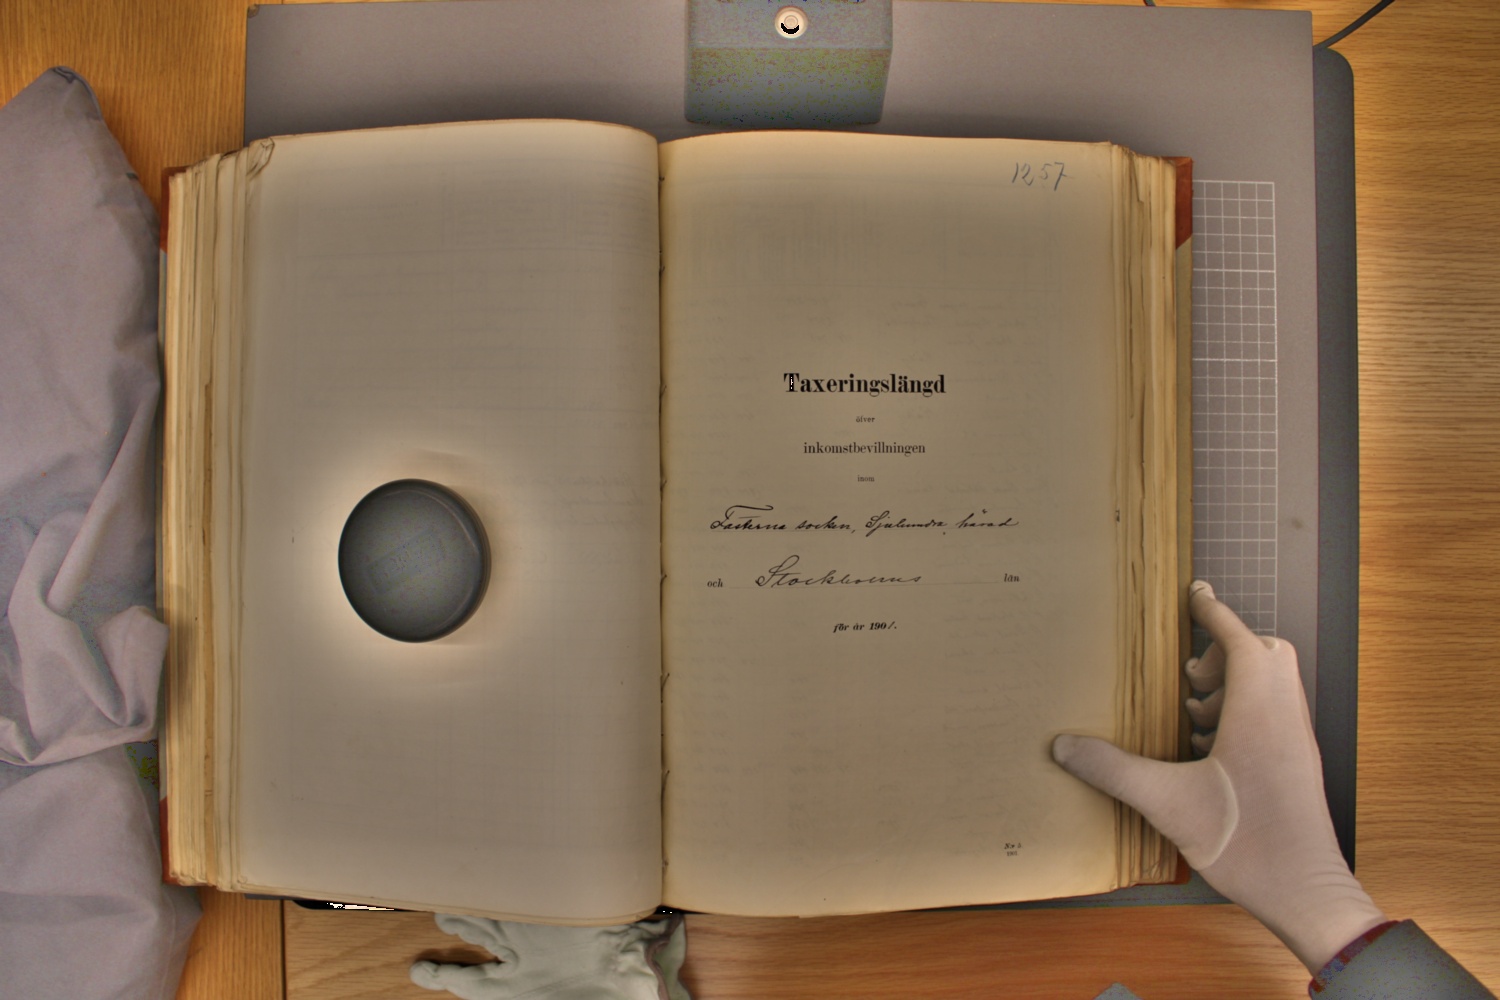 1257
Taxeringslängd
öfver
inkomstbevillningen
inom
socken, Sjuhundra härad
och Stockholms län
för år 1901.
Nr 5.